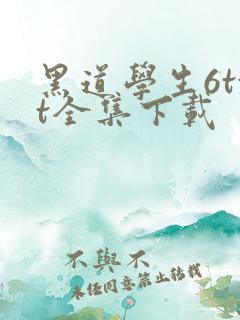 黑道學生6tx
t全集下載
不與不
未任同意禁止转载